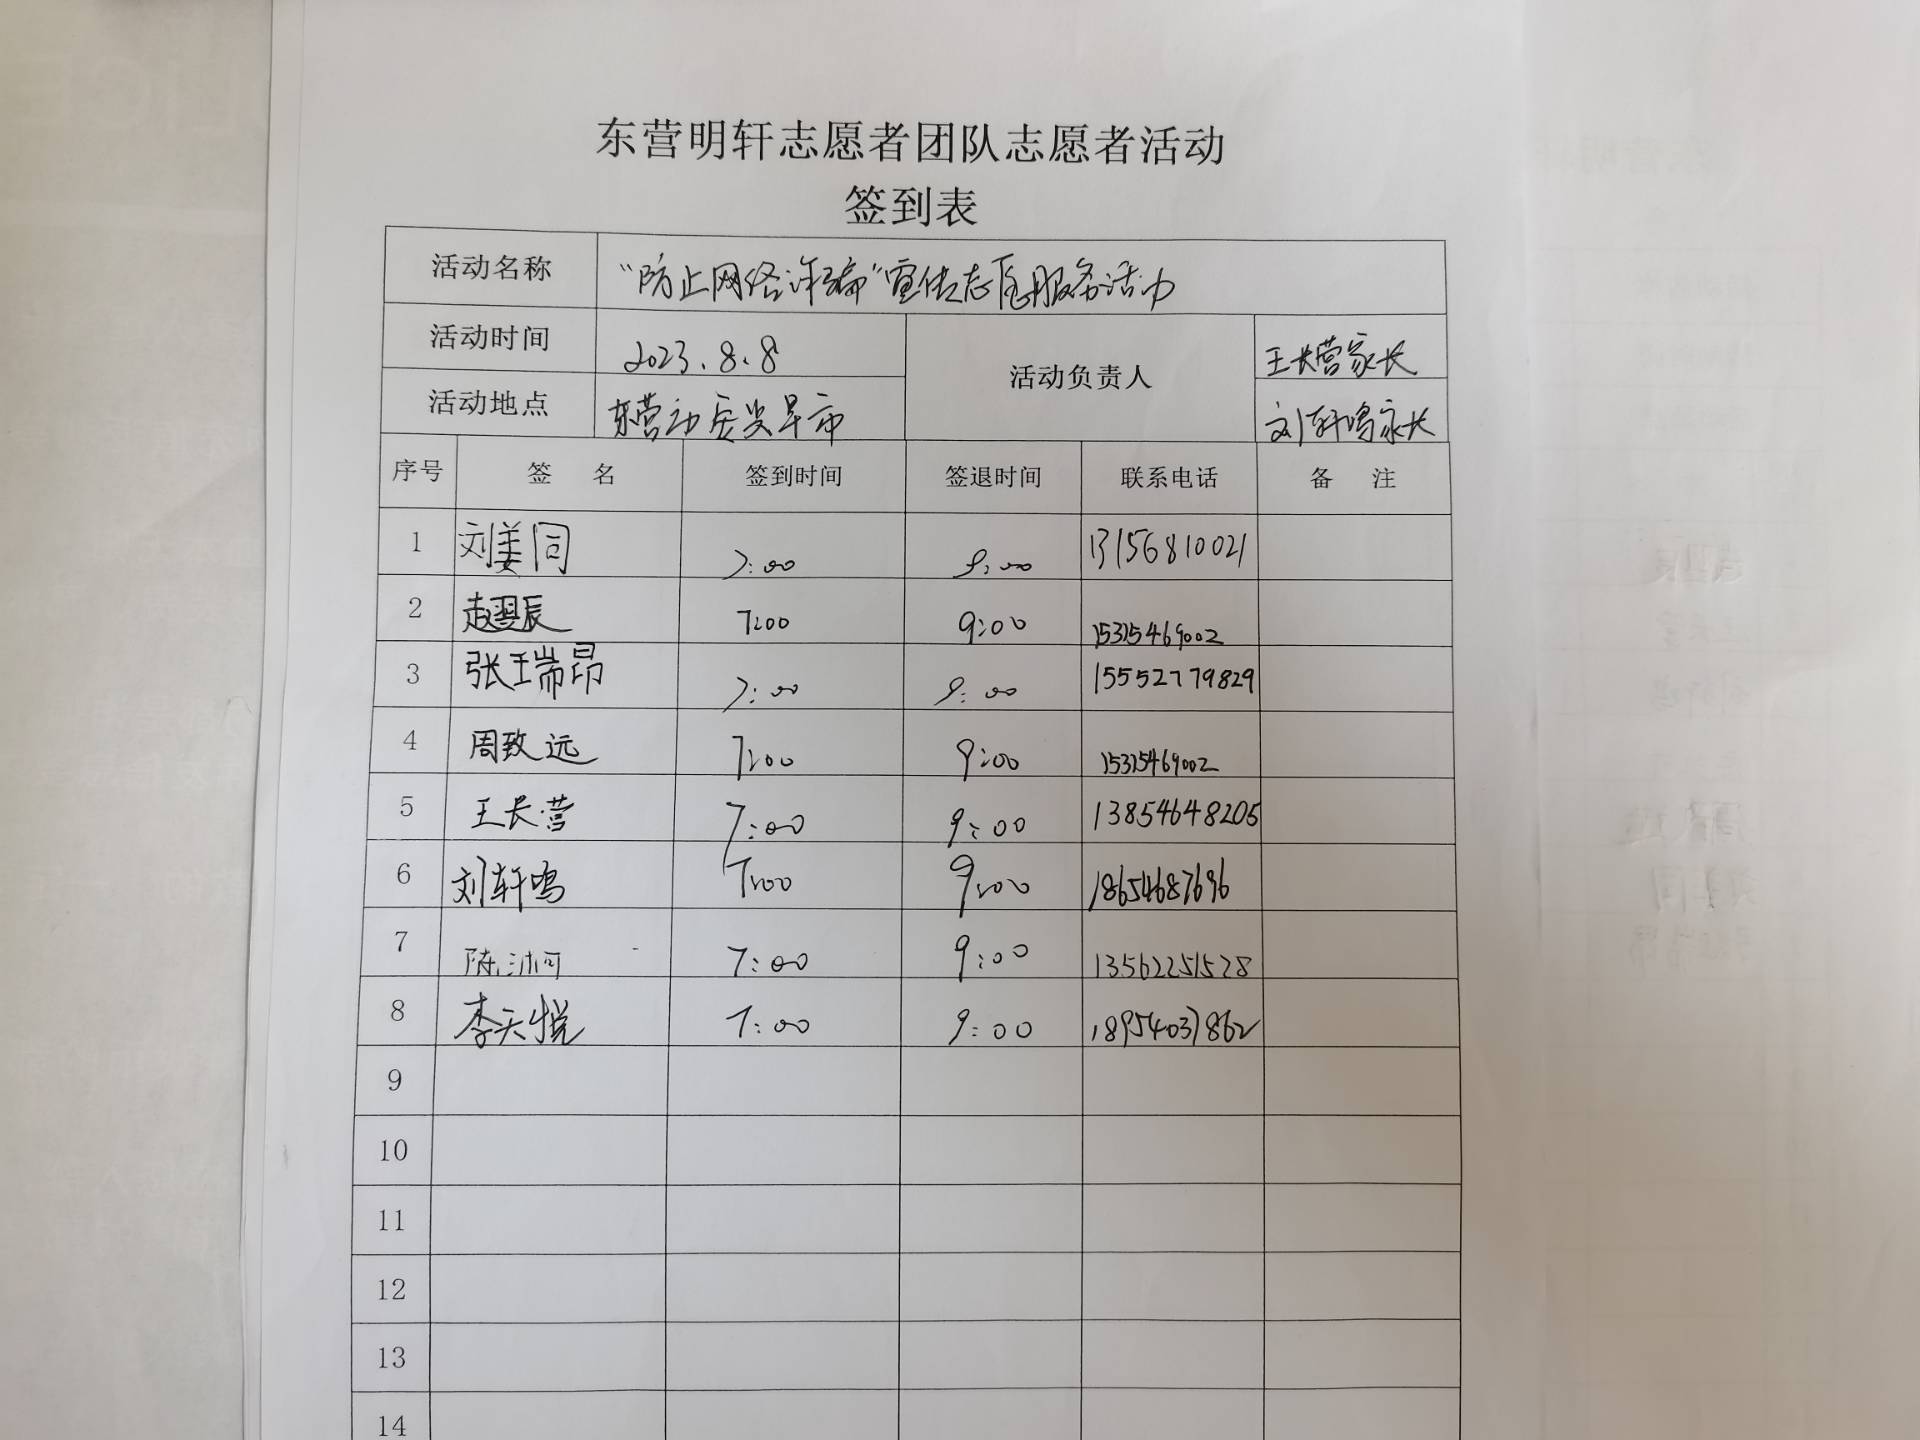 东营明轩志愿者团队志愿者活动
签到表
活动名称 “防止网络诈骗”宣传志愿服务活动
活动时间 2023.8.8 活动负责人 王长营家长
活动地点 东营 早市 刘轩鸣家长
序号 签 名 签到时间 签退时间 联系电话 备 注
1 刘姜同 7:00 9:00 13156810021
2 赵翌辰 7:00 9:00 15315469002
3 张瑞昂 7:00 9:00 15552779829
4 周致远 7:00 9:00 15315469002
5 王长营 7:00 9:00 13854648205
6 刘轩鸣 7:00 9:00 18654687696
7 陈沭可 7:00 9:00 13562251528
8 李天悦 7:00 9:00 18954037862
9
10
11
12
13
14